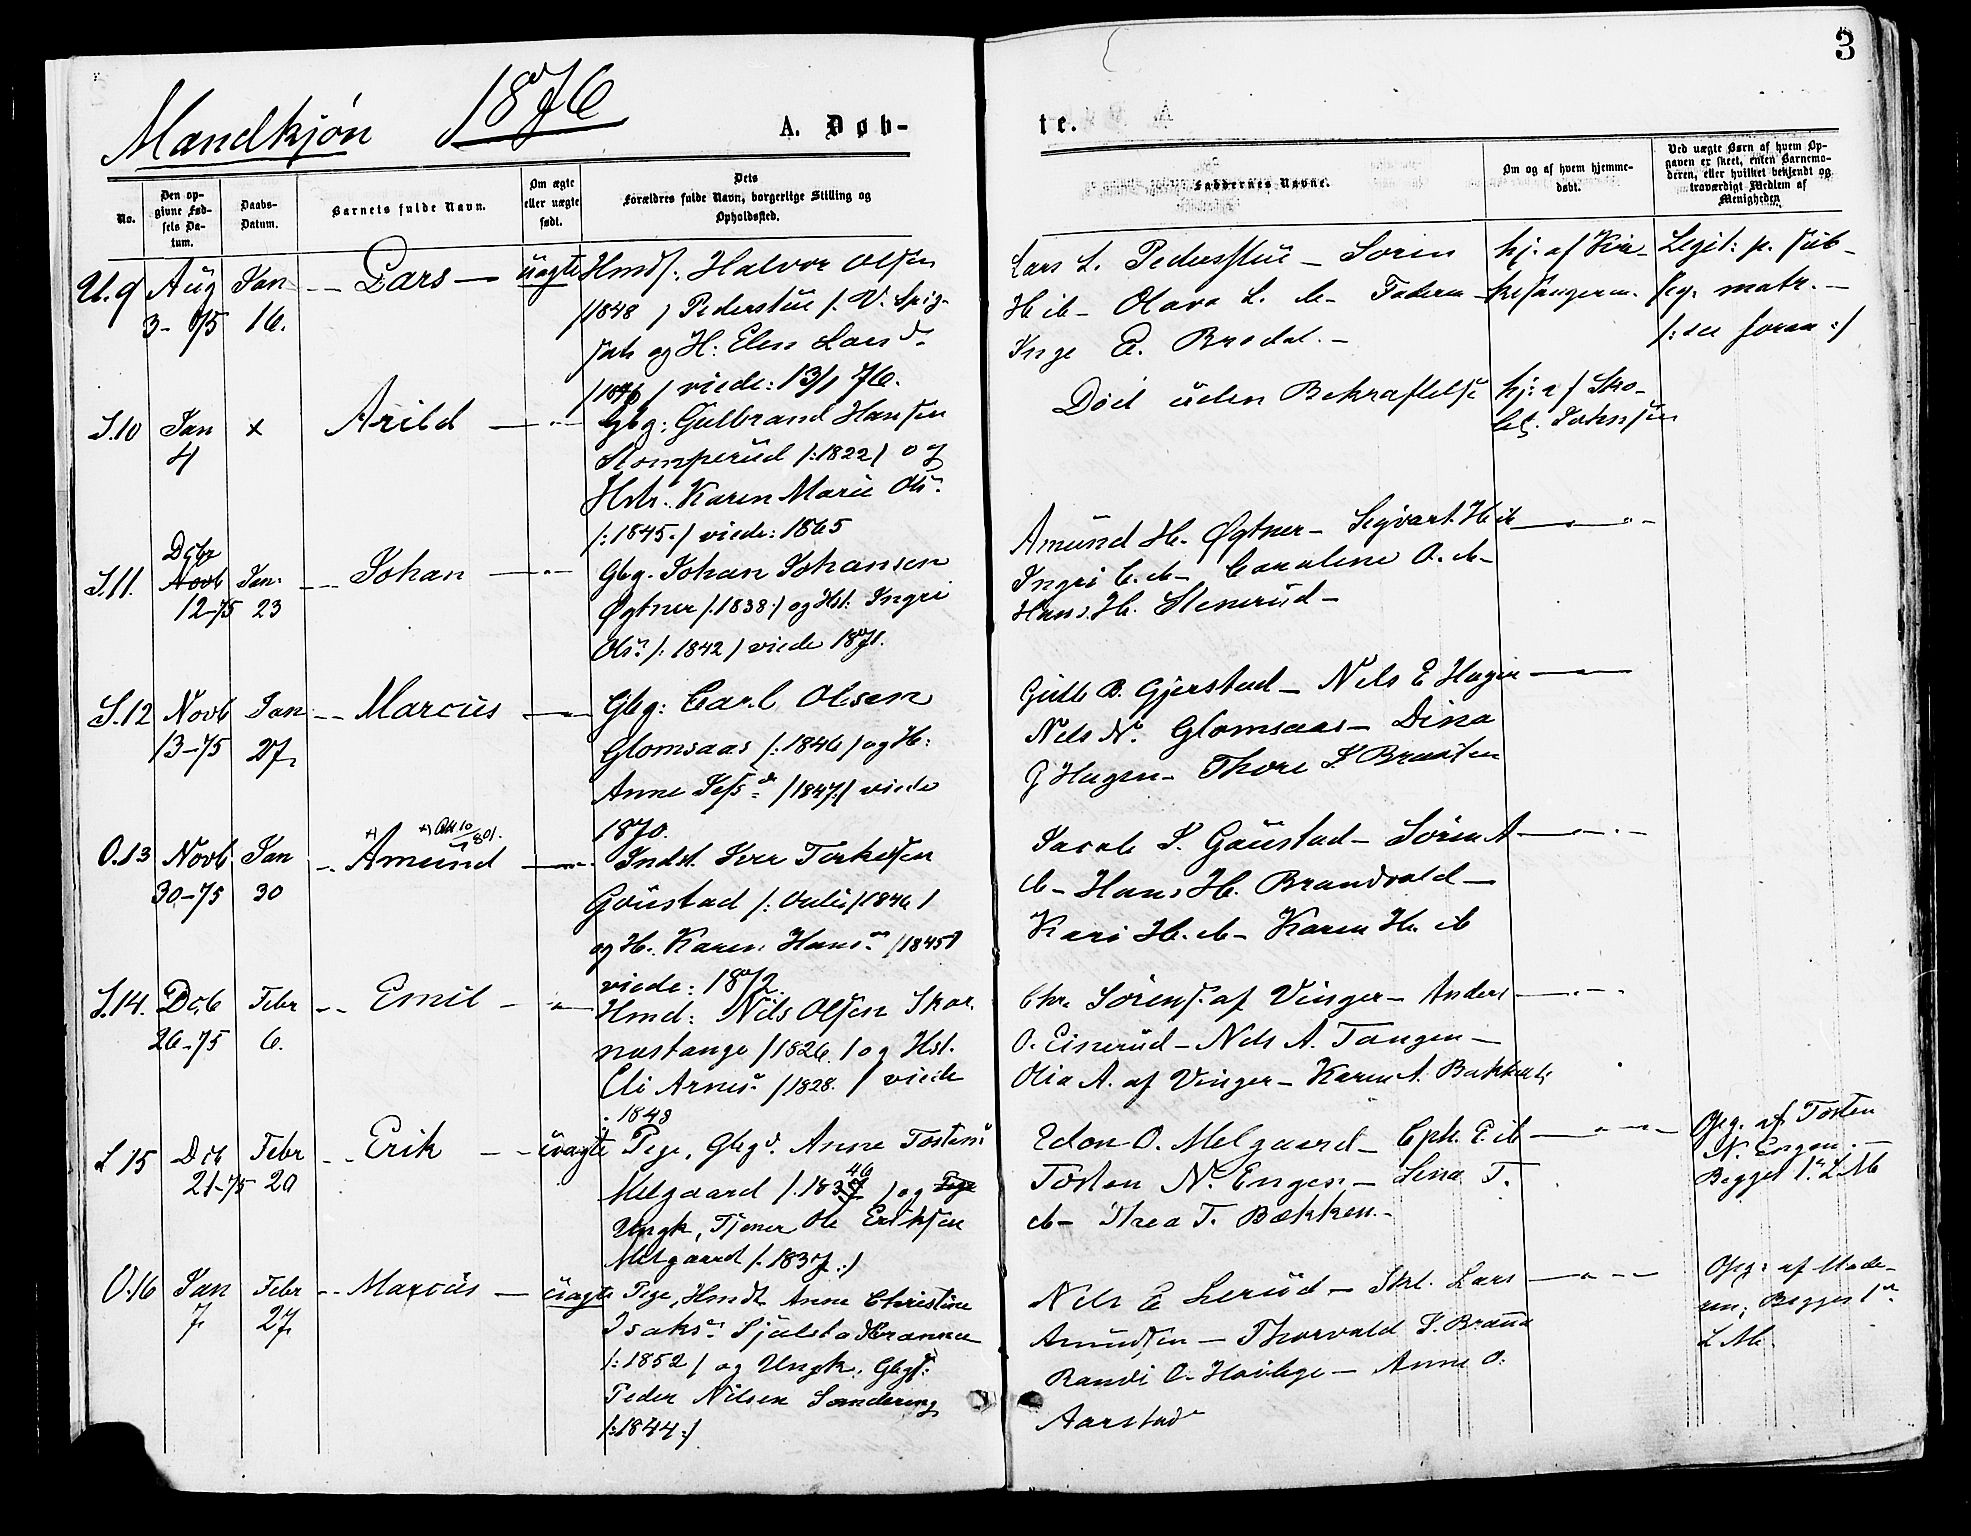 3
Mandkjøn 1876
A. Døb-
te.
No.
Den op-
givne Fød-
sels Da-
tum.
Daabs-
Datum.
Barnets fulde Navn.
Om ægte
eller uægte
født.
Dets
Forældres fulde Navn, borgerlige Stilling og
Opholdssted.
Faddernes Navne.
Om og af hvem hjemme-
døbt.
Ved uægte Børn af hvem Op-
gaven er skeet, enten Barnemo-
deren, eller hvilket bekjendt og
troværdigt Medlem af
Menigheden
U. 9 Aug Jan Lars uægte Hmdsf: Halvor Olsen
3-75 16. /1848 / Pederstue
og H: Elen Lars d.
/ viede: 13/1 76.
Lars L. Pederstue - Soren
H ib - Olava L. ib - Faderen
Inge E. Brodal. -
hj: af Kir-
kesangeren.
Legit: p. sub-
seq. matr. -
/: see foran :/
S. 10 Jan x Arild Gbg: Gulbrand Hansen
4 Stomperud /:1822/ og
Hstr. Karen Marie Ols n.
/:1845./ viede: 1865
Død uden Bekræftelse
hj: af Sko-
lel. Johnsen
S. 11. Decbr Novb Jan: Johan Gbg. Johan Johansen
12-75 23 Øgtner /:1838:/ og Hst: Ingri
Ols n. /: 1842 / viede 1871.
Amund H. Øgtner - Sigvart H ib
Ingri C. ib - Caroline O. ib -
Hans H. Stenerud -
S. 12 Novb Jan Marcus Gbg: Carl Olsen
13-75 27. Glomsaas /:1846 / og H:
Anne /1847:/ viede
1870.
Gulb B. Gjerstad - Nels E Hagen
Nels N. Glomsaas - Dina
G Hagen - Thore S. Braaten
O. 13 Novb. Jan Amund Indst. Iver Torkelsen
30-75 30 Goustad /1846 /
og H. Karen Hans n /1845/
viede: 1872.
Jacob S. Goustad - Søren A
ib - Hans H. Brandvald -
Kari H. ib - Karen H. ib
S. 14. Dcb Febr Emil Hmd: Nils Olsen Skar-
26-75 6. nestange /1826. / og Hst.
Eli Arnes n. /1828. / viede
1848
Chr. Sørens. af Vinger - Anders
O. Einerud - Nels A. Tangen -
Olia A. af Vinger - Karen A. Bakken
L 15 Dcb Febr Erik uægte Pige, Gbgd. Anne Tostens
21-75 20 Melgaard /:1837 46 / og Pige
Ungk, Tjener Ole Eriksen
Melgaard /:1837.:/
Edon O. Melgaard - Cph. E. ib
Tosten N. Engen - Lena T.
ib - Thea T. Bækken. -
Opg. af Tosten
N. Engen. -
Begges 1ste L M
O. 16 Jan Febr Marcus uægte Pige, Hmdt Anne Christine
7. 27. Isaks n.
/:1852 / og Ungk. Gbgs:
Peder Nilsen Sandering
/:1844:/
Nels E Lerud - Skl. Lars
Amundsen - Thorvald S. Braaa
Randi O. - Anne O.
Aarstad
Opg: af Mode-
ren; Begges 1ste
L M.